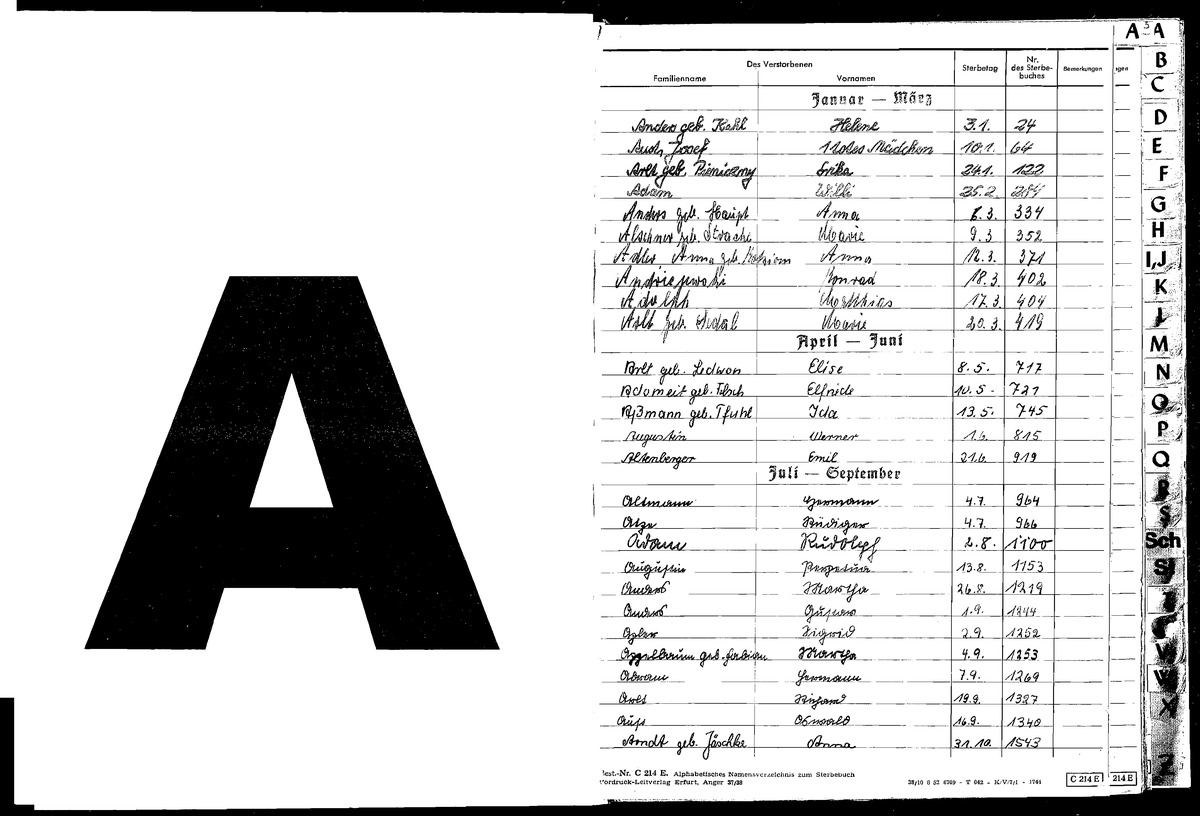 A
A A
Des Verstorbenen
Familienname Vornamen Sterbetag Nr. des Sterbe-buches Bemerkungen
Januar — März
Anders geb. Kahl Helene 3.1. 24
Josef 1 totes Mädchen 10.1. 64
Arlt geb. Pieniczny Erika 24.1. 122
Adam Willi 25.2.
Anders geb. Haupt Anna 6.3. 334
Alschner geb. Marie 9.3 352
Adler Anna geb. Anna 12.3. 371
Konrad 18.3 402
Adolph Matthias 17.3. 404
Arlt geb. Marie 20.3. 419
April — Juni
Arlt geb. Ledwon Elise 8.5. 717
Adomeit geb. Elfriede 10.5. 721
Aßmann geb. Pfuhl Ida 13.5. 745
Augustin Werner 1.6. 815
Altenberger Emil 21.6. 919
Juli — September
Altmann Hermann 4.7. 964
Atze Rüdiger 4.7. 966
Adam Rudolph 2.8. 1100
Augustin Perpetua 13.8. 1153
Anders Martha 26.8. 1219
Anders Gustav 1.9. 1244
Sigrid 2.9. 1252
Appelbaum geb. Fabian Martha 4.9. 1253
Hermann 7.9. 1269
Arlt Richard 19.9. 1327
Oswald 16.9. 1340
Arndt geb. Jäschke Anna 31.10. 1543
Best.-Nr. C 214 E. Alphabetisches Namensverzeichnis zum Sterbebuch
Vordruck-Leitverlag Erfurt, Anger 37/38
C 214 E
214 E
B
C
D
E
F
G
H
I,J
K
M
N
O
P
Q
R
S
Sch
V
W
X
Z